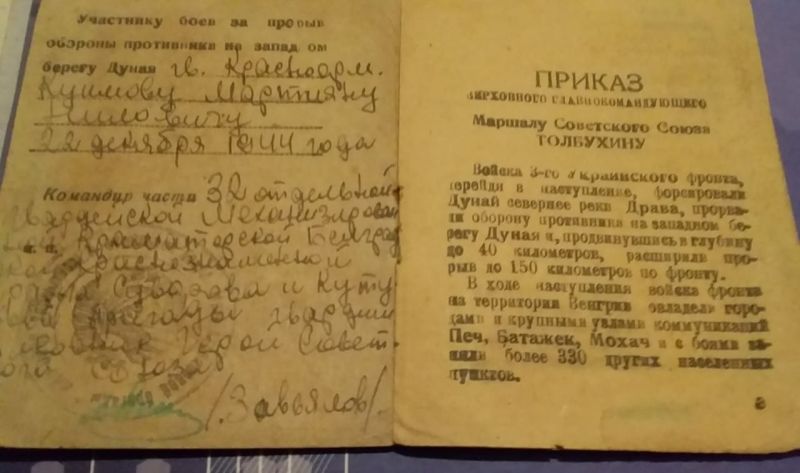 Участнику боев за прорыв
обороны противника на запад ом
берегу Дуная гв. Красноарм.
Куимову Мартиану
Ниловичу
22 декабря 1944 года
Командир части 32 отдельной
Гвардейской Механизирован
Краматорской Белград
Краснознаменной
Суворова и Куту
бригады гвардии
Герой Совет
Союза
/Завьялов/.
ПРИКАЗ
ВЕРХОВНОГО ГЛАВНОКОМАНДУЮЩЕГО
Маршалу Советского Союза
ТОЛБУХИНУ
Войска 3-го Украинского фронта,
перейдя в наступление, форсировали
Дунай севернее реки Драва, прорва-
ли оборону противника на западном бе-
регу Дуная и, продвинувшись в глубину
до 40 километров, расширили про-
рыв до 150 километров по фронту.
В ходе наступления войска фронта
на территории Венгрии овладели горо-
дами и крупными узлами коммуникаций
Печ, Батажек, Мохач и с боями за-
няли более 330 других населенных
пунктов.